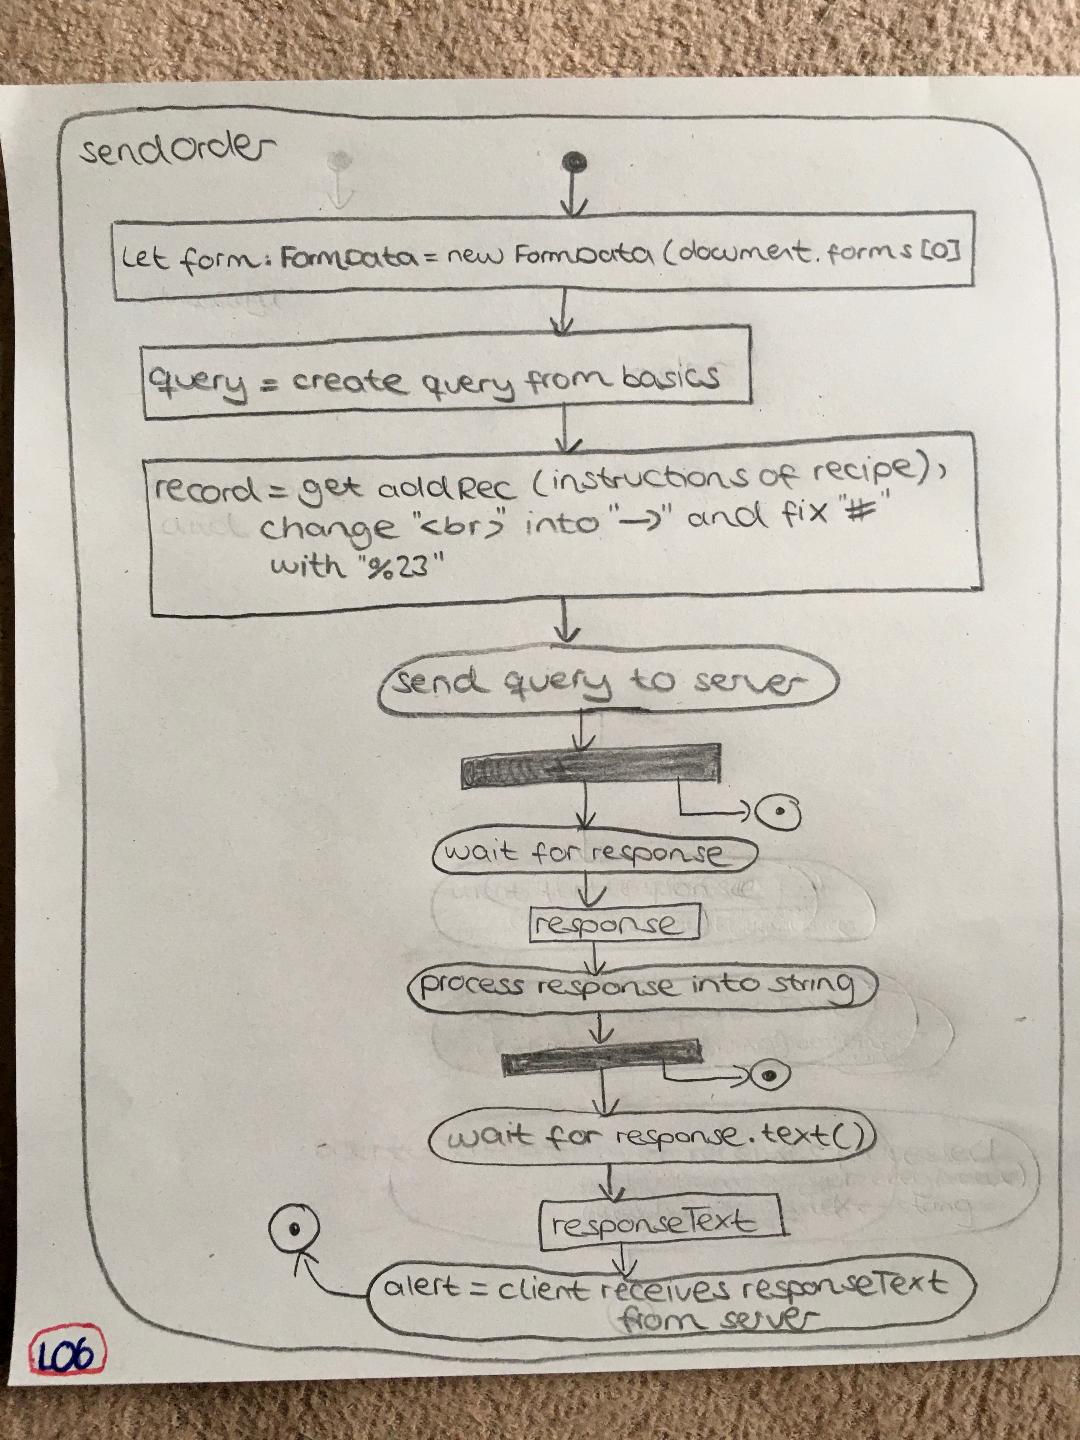 sendOrder
let form: FormData = new FormData (document.forms[0]
query = create query from basics
record = get addRec (instructions of recipe),
change "<br>" into "→" and fix "#"
with "%23"
send query to server
wait for response
response
process response into string
wait for response.text()
responseText
alert = client receives responseText
from server
L06